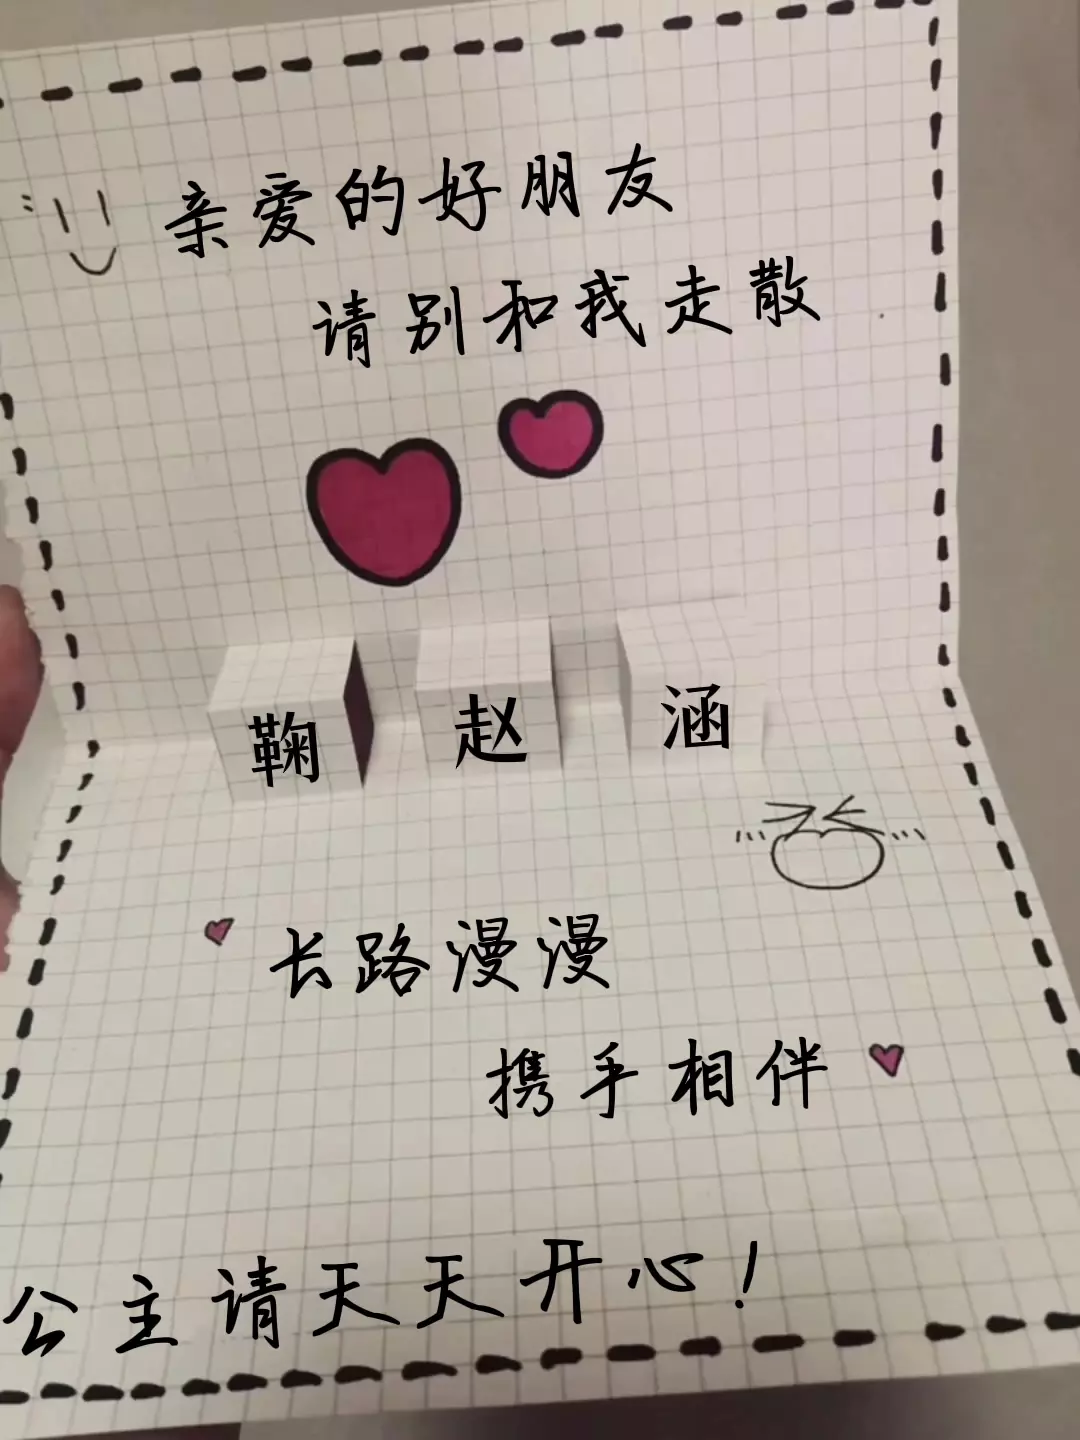 亲爱的好朋友
请别和我走散
鞠赵涵
长路漫漫
携手相伴
公主请天天开心！